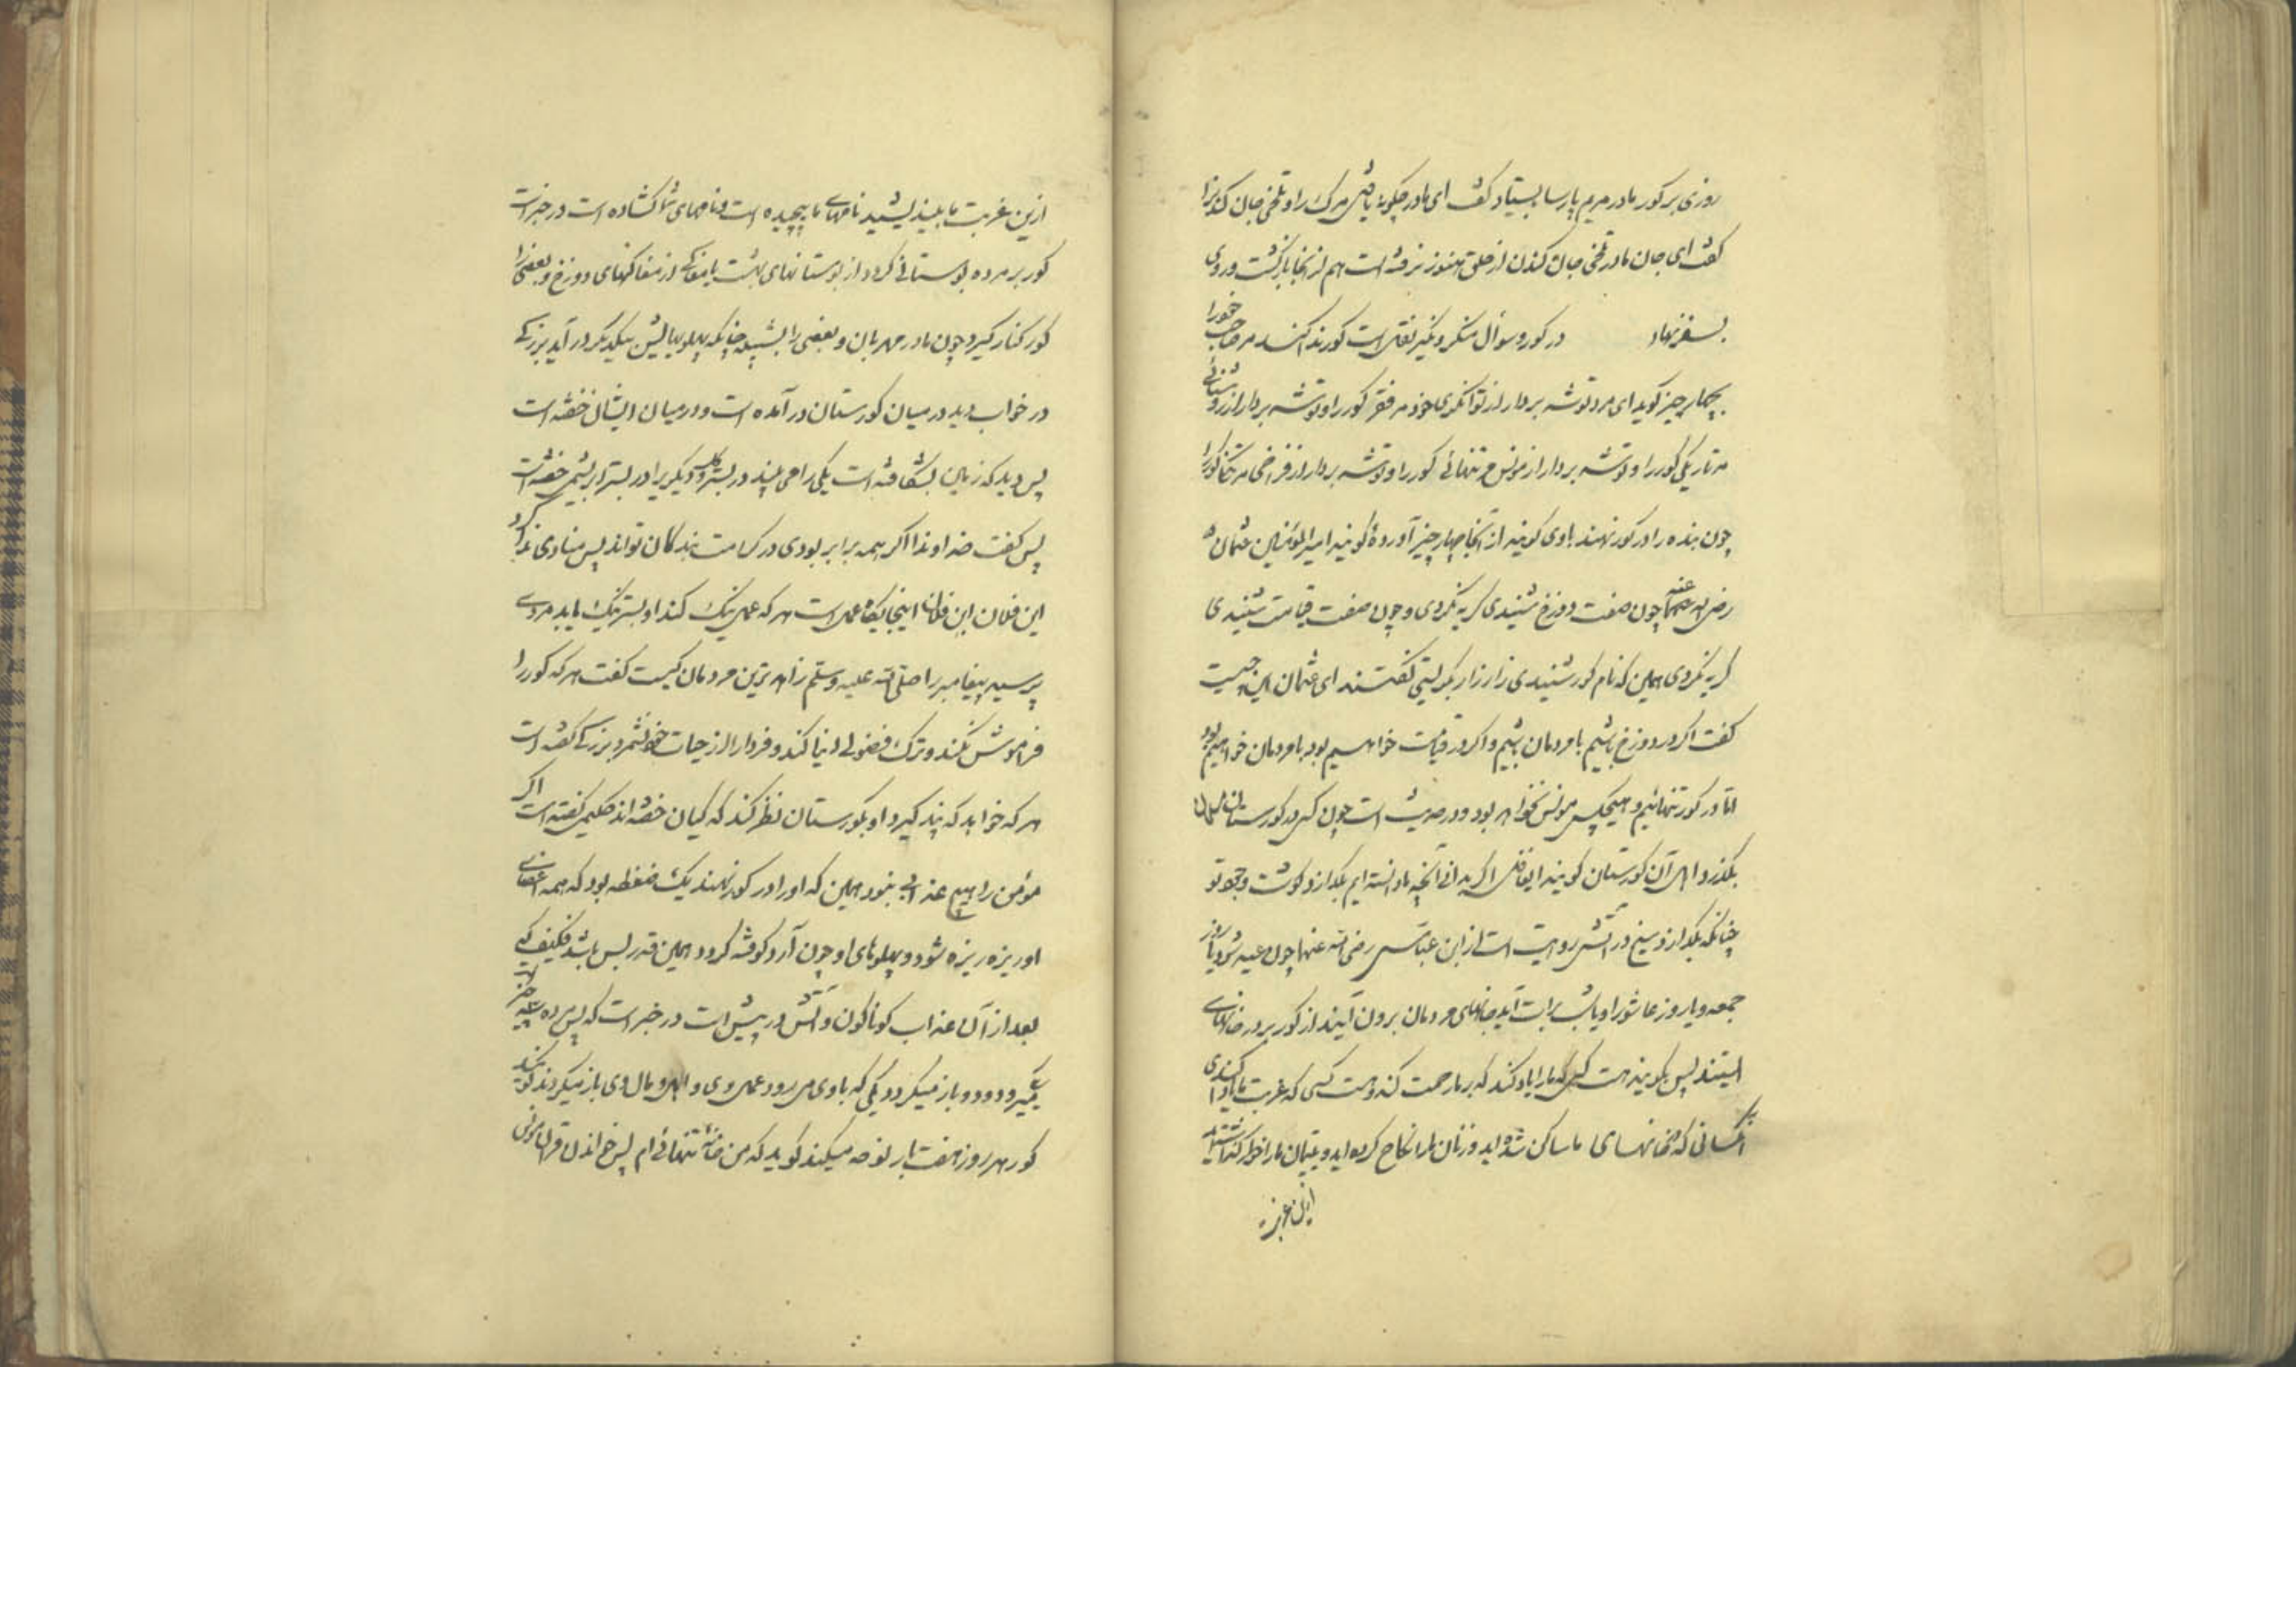 روزی بر کور مادر مریم پارسا بیستاد کفت ای مادر چکونه یافتی مرک را و تلخی جان کندن را
کفت ای جان مادر تلخی جان کندن از حلق هنوز نرفته است هم از انجا بازکشت و روی
بسفر نهاد در کور و سوأل منکر و نکیر نقل است کور ندا کند مر صاحب خود را
بچهار چیز کوید ای مرد توشه بردار از توانکری خود مر فقر کور را و توشه بردار از روشنائی
مر تاریکی کور را و توشه بردار از مونس مر تنهائی کور را و توشه بردار از فراخی مر تنکی کور را
چون بنده را در کور نهند باوی کویند از آنجا چهار چیز آوردهٔ کویند امیر المؤمنین عثمان
رضی الله عنه چون صفت دوزخ شنیدی کریه نکردی و چون صفت قیامت شنیدی
کریه نکردی همین که نام کور شنیدی زار زار بکریستی کفتند ای عثمان این چیست
کفت اکر در دوزخ باشیم با مردمان باشیم و اکر در قیامت خواهیم بود با مردمان خواهیم بود
امّا در کور تنهائیم و هیچکس مونس نخواهد بود و در حدیث است چون کسی در کورستان مسلمانان
بکذرد اهل آن کورستان کویند ای غافل اکر بدانی آنچه ما دانسته ایم بکدازد کوشت و تو
چنانکه بکدازد یخ در آتش روایت است از ابن عباس رضی الله عنهما چون عید شود یا روز
جمعه و یا روز عاشورا و یا شب برات آید جانهای مردمان برون آیند از کور بر در خانهای
ایستند پس بکویند هست کسی که ما را یاد کند که بر ما رحمت کند و هست کسی که غربت ما یاد کند ای
آنکسانی که بخانهای ما ساکن شده اید و زنان ما را نکاح کرده اید و یتیمان ما را خوار کذاشتید
ازین غربت
ازین غربت ما بیندیشید نامهای ما پیچیده است و نامهای شما کشاده است در خبر است
کور بر مرده بوستانی کردد از بوستانهای بهشت یا مغاکی از مغاکهای دوزخ و بعضی را
کور کنار کیرد چون مادر مهربان و بعضی را چنانکه پهلوهایش بیکدیکر در آید بزرکی
در خواب دید در میان کورستان در آمده است و در میان ایشان خفته است
پس دید که زمین بشکافته است یکی را می بیند در بستر و دیکری را در بستر ابریشم خفته است
پس کفت خداوندا اکر همه برابر بودی در کرامت بندکان تواند پس منادی ندا کرد
این فلان ابن فلان اینجایکاه عمل است هر که عمل نیک کند او بستر نیک یابد مردی
پرسید پیغامبر را صلی الله علیه وسلم زاهد ترین مردمان کیست کفت هر که کور را
فراموش نکند و ترک فضولی دنیا کند و فردا را از حیات خود نشمرد بزرکی کفته است
هر که خواهد که پند کیرد او بکورستان نظر کند که کیان خفته اند حکیمی کفته است اکر
مؤمن را هیچ عذابی نبود همین که او را در کور نهند یک ضغطه بود که همه اعضای
او ریزه ریزه شود و پهلوهای او چون آرد کوفته کردد همین قدر بس باشد فکیف که
بعد از آن عذاب کوناکون و آتش در پیش است در خبر است که پس مرده سه چیز
میرود و دو باز میکردد یکی که باوی میرود عمل وی و اهل و مال وی باز میکردند
کور هر روز هفت بار نوحه میکند کوید که من خانه تنهائی ام پس خواندن قرآن مونس